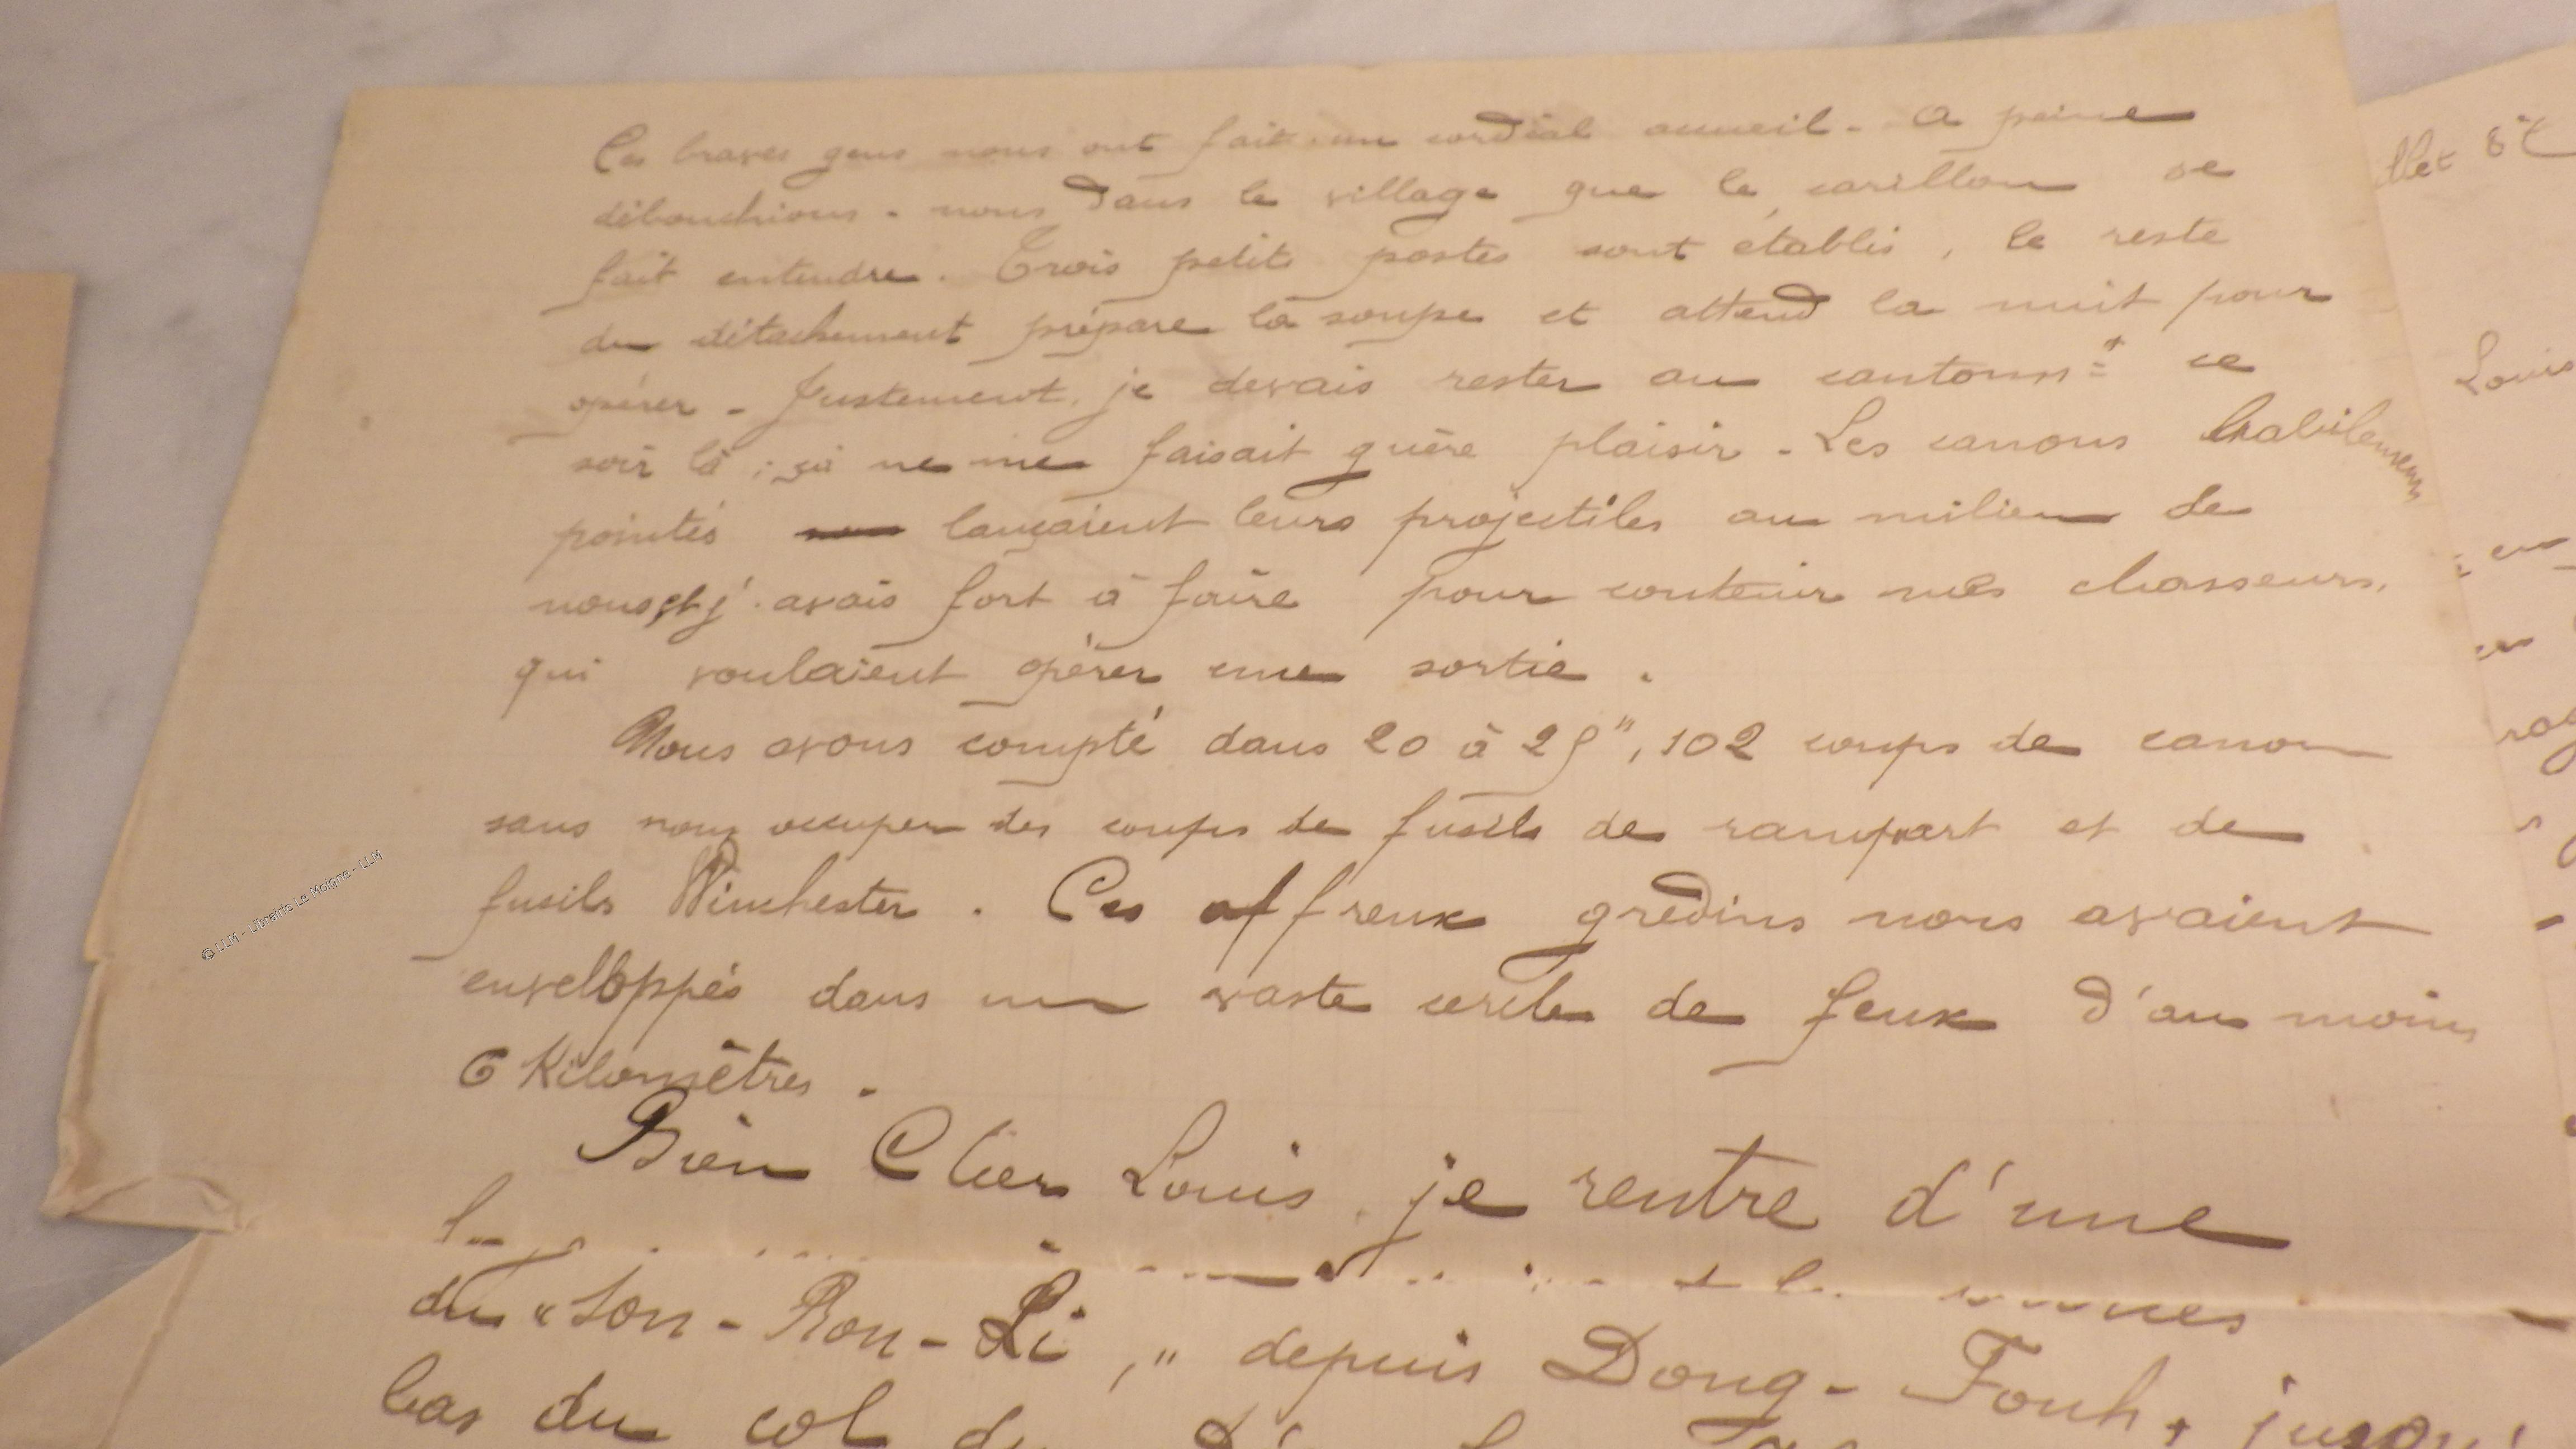 Ces braves gens nous ont fait un cordial accueil - a peine
débouchions-nous dans le village que le carillon se
fait entendre. Trois petits postes sont établis, le reste
du détachement prépare la soupe et attend la nuit pour
opérer - Justement, je devais rester au cantonnt ce
soir là ; ça ne me faisait guère plaisir - Les canons habilement
pointés lançaient leurs projectiles au milieu de
nous, et j'avais fort à faire pour contenir mes chasseurs,
qui voulaient opérer une sortie.
Nous avons compté dans 20 à 25", 102 coups de canon
sans nous occuper des coups de fusils de rampart et de
fusils Winchester. Ces affreux gredins nous avaient
enveloppés dans un vaste cercle de feux d'au moins
6 Kilomètres.
Bien Cher Louis, je rentre d'une
du "Son-Ron-Li," depuis Dong-Fouh,
bas du col
llet 8
Louis
© LLM - Librairie Le Moigne - LLM